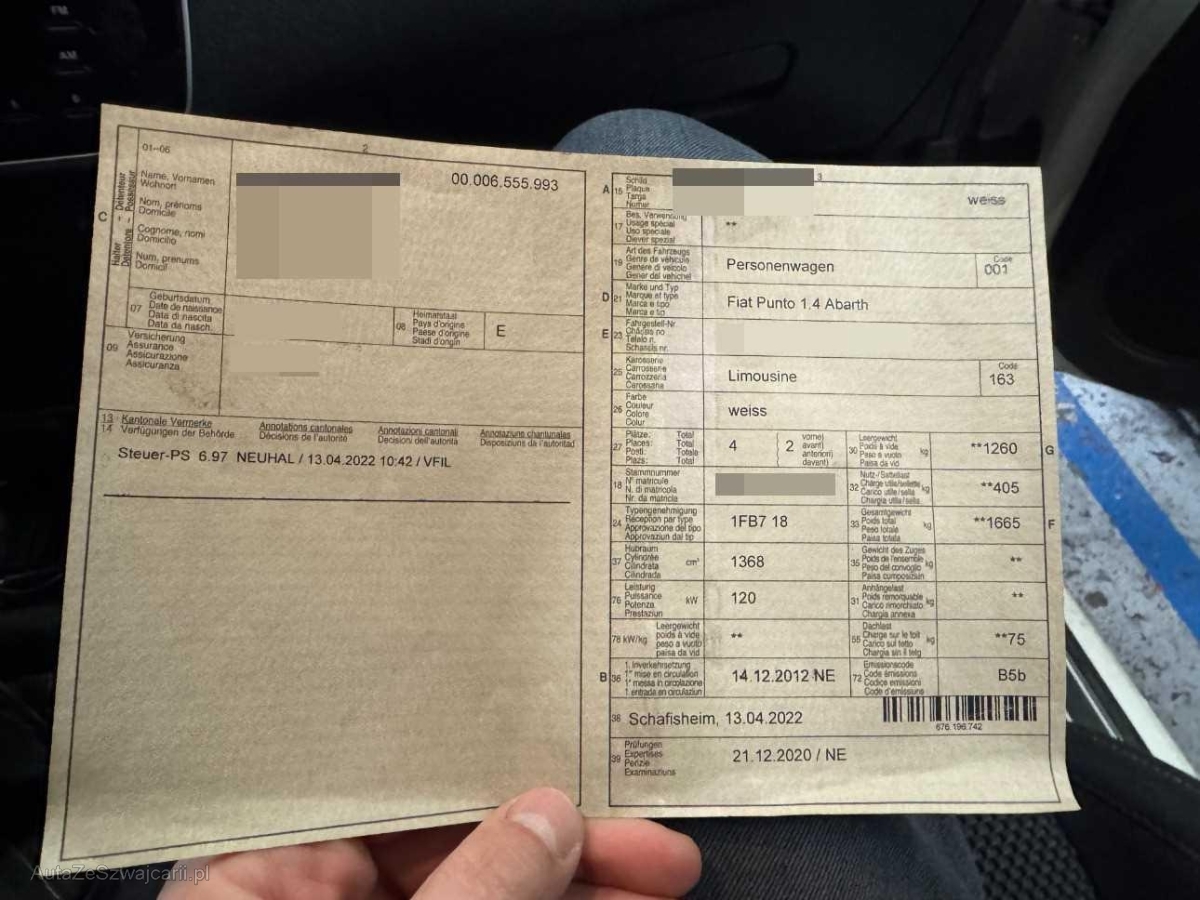 FM
AM
2
01–06
Name, Vornamen
Wohnort
Nom, prénoms
Domicile
Cognome, nomi
Domicilio
Num, prenums
Domicil
C
Halter
Détenteur
00.006.555.993
07
Geburtsdatum
Date de naissance
Data di nascita
Data da nasch.
08
Heimatstaat
Pays d'origine
Paese d'origine
Stadi d'origin
E
09
Versicherung
Assurance
Assicurazione
Assicuranza
13
14
Kantonale Vermerke
Verfügungen der Behörde
Annotations cantonales
Décisions de l'autorité
Annotazioni cantonali
Decisioni dell'autorità
Annotaziuns chantunalas
Disposiziuns da l'autoritad
Steuer-PS 6.97 NEUHAL / 13.04.2022 10:42 / VFIL
3
A 15
Schild
Plaque
Targa
Numer
weiss
17
Bes. Verwendung
Usage spécial
Uso speciale
Diever spezial
**
19
Art des Fahrzeugs
Genre de véhicule
Genere di veicolo
Gener del vehichel
Personenwagen
Code
001
D 21
Marke und Typ
Marque et type
Marca e tipo
Marca e tip
Fiat Punto 1.4 Abarth
E 23
Fahrgestell-Nr
Châssis no
Telaio n.
Schassis nr.
25
Karosserie
Carrosserie
Carrozzeria
Carossaria
Limousine
Code
163
26
Farbe
Couleur
Colore
Colur
weiss
27
Plätze: Total
Places: Total
Posti: Totale
Plazs: Total
4
2
vorne)
avant)
anteriori)
davant)
30
Leergewicht
Poids à vide
Peso a vuoto
Paisa da vid
kg
**1260
G
18
Stammnummer
N° matricule
N. di matricola
Nr. da matricla
32
Nutz-/Sattellast
Charge utile/sellette
Carico utile/sella
Chargia utila/sella
kg
**405
24
Typengenehmigung
Réception par type
Approvazione del tipo
Approvaziun dal tip
1FB7 18
33
Gesamtgewicht
Poids total
Peso totale
Paisa totala
kg
**1665
F
37
Hubraum
Cylindrée
Cilindrata
Cilindrada
cm³
1368
35
Gewicht des Zuges
Poids de l'ensemble
Peso del convoglio
Paisa cumposiziun
kg
**
76
Leistung
Puissance
Potenza
Prestaziun
kW
120
31
Anhängelast
Poids remorquable
Carico rimorchiato
Chargia annexa
kg
**
78 kW/kg
Leergewicht
poids à vide
peso a vuoto
paisa da vid
**
55
Dachlast
Charge sur le toit
Carico sul tetto
Chargia sin il tetg
kg
**75
B 36
1. Inverkehrsetzung
1re mise en circulation
1a messa in circolazione
1. entrada en circulaziun
14.12.2012 NE
72
Emissionscode
Code émissions
Codice emissioni
Code d'emissiuns
B5b
38
Schafisheim, 13.04.2022
676.196.742
39
Prüfungen
Expertises
Perizie
Examinaziuns
21.12.2020 / NE
AutaZeSzwajcarii.pl